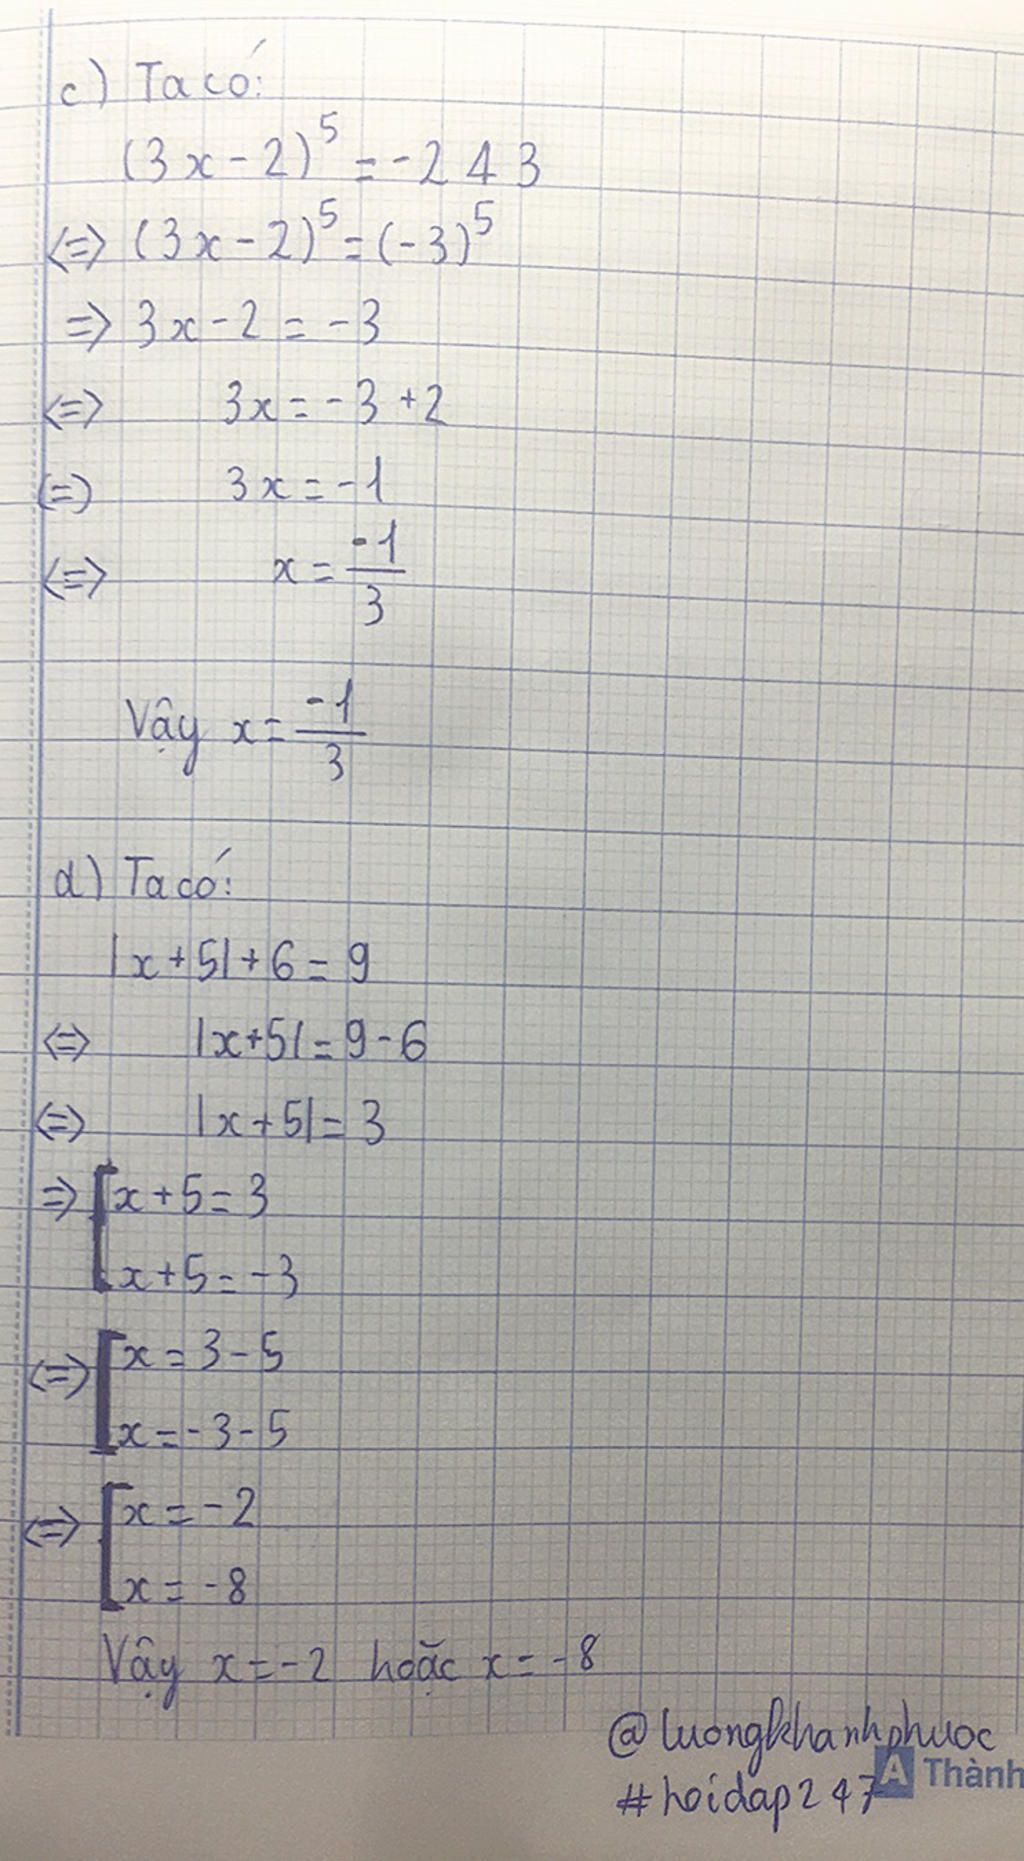 c) Ta có:
(3x-2)⁵ = -243
<=> (3x-2)⁵ = (-3)⁵
=> 3x-2 = -3
<=> 3x = -3+2
(=) 3x = -1
<=> x = -1/3
Vậy x = -1/3
d) Ta có:
|x+5|+6 = 9
<=> |x+5| = 9-6
<=> |x+5| = 3
=> [x+5 = 3
x+5 = -3
<=> [x = 3-5
x = -3-5
<=> [x = -2
x = -8
Vậy x = -2 hoặc x = -8
@luongkhanhphuoc
A Thành
#hoidap247